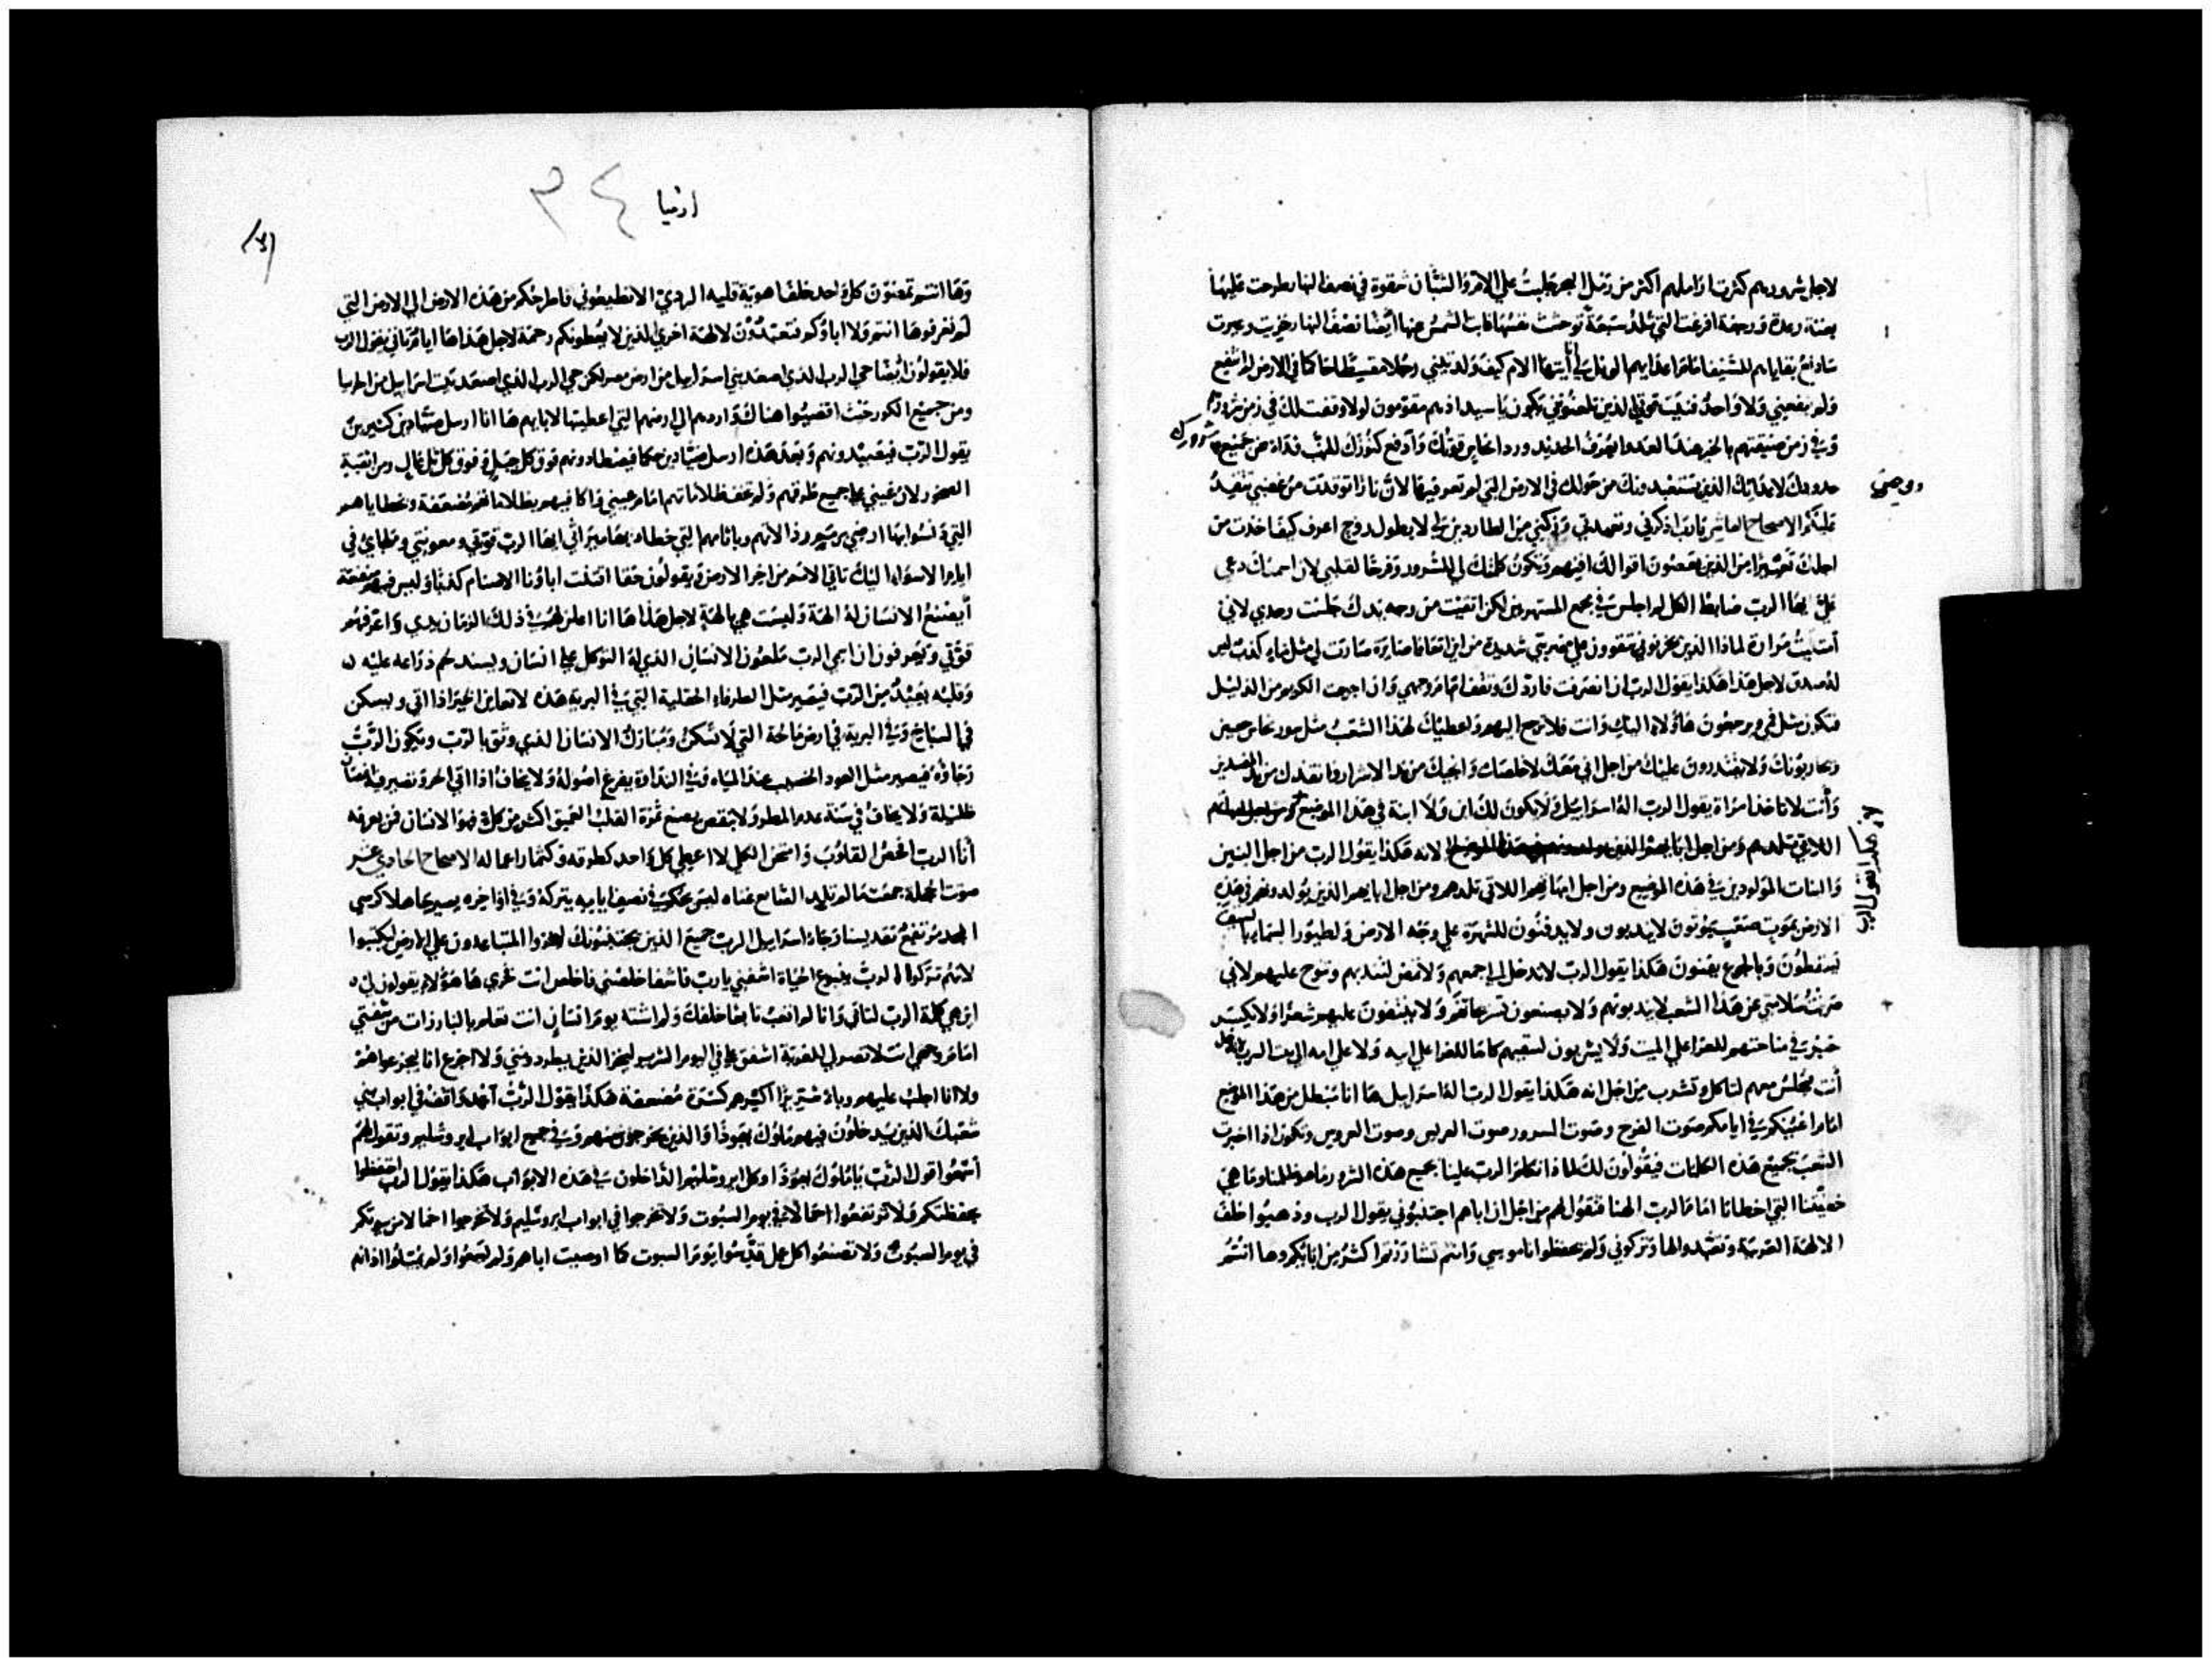 لاجل شرورهم كثرت اراملهم اكثر من رمل البحر جلبت علي الام والشبان شقوة في نصف النهار طرحت عليها
بغتة رعدة ورجفة افرغت التي تلد سبعة توحشت نفسها غابت الشمس عنها ايضا نصف النهار خزيت وعيرت
سادفع بقاياهم للسيف امام اعدايهم الويل لي انا ايتها الام كيف ولدتيني رجلا مقسطا محاكما في الارض لم انفع
ولم ينفعني ولا واحد فنيت قوتي الذين يلعنوني يكون يا سيد اذ هم مقومون لولا وقفت لك في زمن شرورهم
وفي زمن ضيقتهم بالخير ضد العدو ايعرف الحديد ورداء نحاس قوتك وادفع كنوزك للنهب فداء من جميع شرورك
حدودك لاعدايك الذين تستعبد ونك من حولك في الارض التي لم تعرفها لان نارا توقدت من غضبي تتقد
عليكم الاصحاح العاشر يا رب اذكرني وتعهدني وزكيني من الطاردين لي لا بطول روح اعرف كيف اخذت من
اجلك تعييرا من الذين يقصون اقوالك افنيهم وتكون كلمتك لي للسرور وفرحا لقلبي لان اسمك دعي
علي ايها الرب ضابط الكل لم اجلس في مجمع المستهزين لكن اتقيت من وجه يدك جلست وحدي لاني
امتليت مرارة لماذا الذين يحزنوني يتقوون علي ضربتي شديدة من اين اتعافا صايرة صارت لي مثل ماء كذب ليس
له صدق لاجل هذا هكذا يقول الرب ان انصرفت فاردك وتقف امام وجهي وان اخرجت الكريم من الذليل
فتكون مثل فمي ويرجعون هاولاء اليك وانت فلا ترجع اليهم ولعطيك لهذا الشعب مثل سور نحاس حصين
ويحاربونك ولا يقتدرون عليك من اجل اني معك لاخلصك وانجيك من يد الاشرار وانقذك من يد المفسدين
وانت لا تاخذ امراة يقول الرب اله اسراييل ولا يكون لك ابن ولا ابنة في هذا الموضع
اللاتي تلدهم ومن اجل ابايهم الذين لانه هكذا يقول الرب من اجل البنين
والبنات المولودين في هذه الموضع ومن اجل امهاتهم اللاتي تلدهم ومن اجل ابايهم الذين يولدونهم في هذه
الارض بموت صعب يموتون لا يندبون ولا يدفنون للشهرة علي وجه الارض ولطيور السماء بالسيف
يسقطون وبالجوع يفنون هكذا يقول الرب لا تدخل الي مجمعهم ولا تمض لتندبهم وتنوح عليهم لاني
صرفت سلامتي عن هذا الشعب لا يندبونهم ولا يصنعون تسريحا تقفر ولا ينتفون عليهم شعرا ولا يكسر
خبز في مناحتهم للعزا علي الميت ولا يشربون لسقيهم كاسا للعزا علي ابيه ولا علي امه الي بيت الشرب لا تدخل
انت تجلس معهم لتاكل وتشرب من اجل انه هكذا يقول الرب اله اسراييل ها انا مبطل من هذا الموضع
امام اعينكم في ايامكم صوت الفرح وصوت السرور صوت العريس وصوت العروس ويكون اذا اخبرت
الشعب بجميع هذه الكلمات فيقولون لك لماذا تكلم الرب علينا بجميع هذه الشرور وما هو ظلمنا وما هي
خطيتنا التي اخطانا امام الرب الهنا فتقول لهم من اجل ان اباهم اجتنبوني يقول الرب وذهبوا خلف
الالهة الغريبة وتعبدوا لها وتركوني ولم يحفظوا ناموسي وانتم تشاررتم اكثر من ابايكم وها انتم
وموضي
هكذا يقول الرب
ارميا
٣٤
وها انتم تمضون كل واحد خلف اهوية قلبه الردي الا تطيعوني فاطرحكم من هذه الارض الي الارض التي
لم تعرفوها انتم ولا اباوكم فتعبدون لالهة اخري الذين لا يعطونكم رحمة لاجل هذا ها ايام تاتي يقول الرب
فلا يقولون ايضا حي الرب الذي اصعد بني اسراييل من ارض مصر لكن حي الرب الذي اصعد بيت اسراييل من الجربيا
ومن جميع الكور حيث اقصيوا هناك واردهم الي ارضهم التي اعطيتها لابايهم ها انا ارسل صيادين كثيرين
يقول الرب فيصيدونهم وبعد هذه ارسل صيادين هكا فيصطادونهم فوق كل جبل وفوق كل تل عالي ومن انقبة
الصخور لان عيني علي جميع طرقهم ولم تخف ظلاماتهم امام عيني واكافيهم بظلاماتهم مضعفة وخطاياهم
التي دنسوا بها ارضي برميم رذالاتهم وباثامهم التي خطاوا بها ميراثي ايها الرب قوتي ومعونتي وملجاي في
ايام الاسواء اليك تاتي الامم من اخر الارض ويقولون حقا اقتنت اباونا الاصنام كذبا وليس فيهم منفعة
ايصنع الانسان له الهة وليست هي بالهة لاجل هذا ها انا اعلن لهم في ذلك الزمان يدي واعرفهم
قوتي ويعرفون ان اسمي الرب ملعون الانسان الذي له التوكل علي انسان ويسند لحم ذراعه عليه
وقلبه يبعد من الرب فيصير مثل الطرفاء الحقلية التي في البرية هذه لا تعاين الخير اذا اتي ويسكن
في السباخ وفي البرية في ارض مالحة التي لا تسكن ومبارك الانسان الذي وثق بالرب ويكون الرب
رجاؤه فيصير مثل العود الخصب عند المياه وفي النداوة يفرع اصوله ولا يخاف اذا اتي الحر وتصير فيه اغصان
ظليلة ولا يخاف في سنة عدم المطر ولا ينقص يصنع ثمرة القلب العميق اكثر من كل فهو الانسان فمن يعرفه
انا الرب افحص القلوب وامتحن الكلي لا اعطي كل واحد كطرقه وكثمار اعماله الاصحاح الحادي عشر
صوت الحجلة جمعت ما لم تلد الصانع غناه ليس بحكم في نصف ايامه يتركه وفي اواخره يصير جاهلا كرسي
المجد مرتفع تقديسنا رجاء اسراييل الرب جميع الذين يجتنبونك ليخزوا المتباعدون علي الارض ليكتبوا
لانهم تركوا الرب ينبوع الحياة اشفيني يا رب فاشفا خلصني فاخلص انت فخري ها هؤلاء يقولون لي
اين هي كلمة الرب لتاتي وانا لم اتعب تابعا خلفك ولم اشته يوم انسان انت تعلم بالبارزات من شفتي
امام وجهي انت لا تصير لي للغربة اشفق علي في اليوم الشرير ليخز الذين يطردونني ولا اخزي انا ليجزعوا هم
ولا انا اجلب عليهم يوما شريرا اكسرهم كسرة مضعفة هكذا يقول الرب امض واقف في ابواب بني
شعبك الذين يدخلون فيهم ملوك يهوذا والذين يخرجون منهم وفي جميع ابواب ايروشليم وتقول لهم
اسمعوا قول الرب يا ملوك يهوذا وكل ايروشليم الداخلون في هذه الابواب هكذا يقول الرب احتفظوا
بحفظتكم ولا ترفعوا احمالا في يوم السبوت ولا تخرجوا في ابواب ايروشليم ولا تخرجوا احمالا من بيوتكم
في يوم السبوت ولا تصنعوا كل عمل قدسوا يوم السبوت كما اوصيت اباهم ولم يسمعوا ولم يميلوا اذانهم